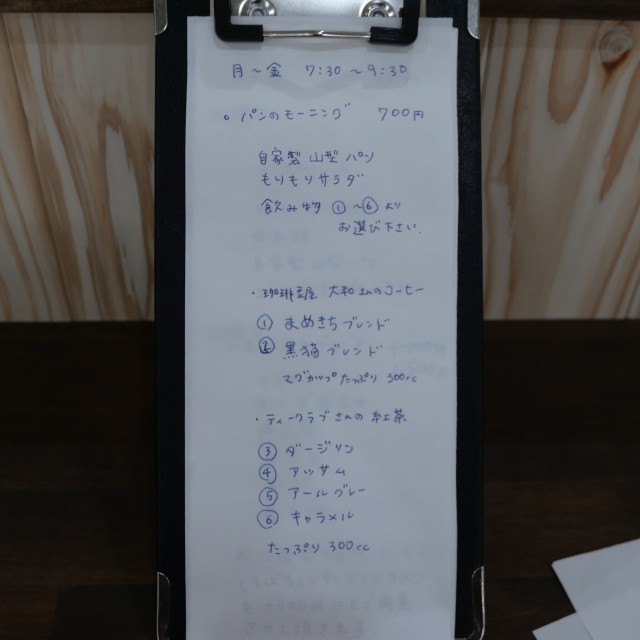 月～金 7:30～9:30
。パンのモーニング 700円
自家製 山型 パン
もりもりサラダ
飲み物 ①～⑥ より
お選び下さい.
・珈琲豆屋 大和さんのコーヒー
① まめきちブレンド
② 黒猫ブレンド
マグカップたっぷり 300cc
・ティークラブさんの 紅茶
③ ダージリン
④ アッサム
⑤ アールグレー
⑥ キャラメル
たっぷり 300cc